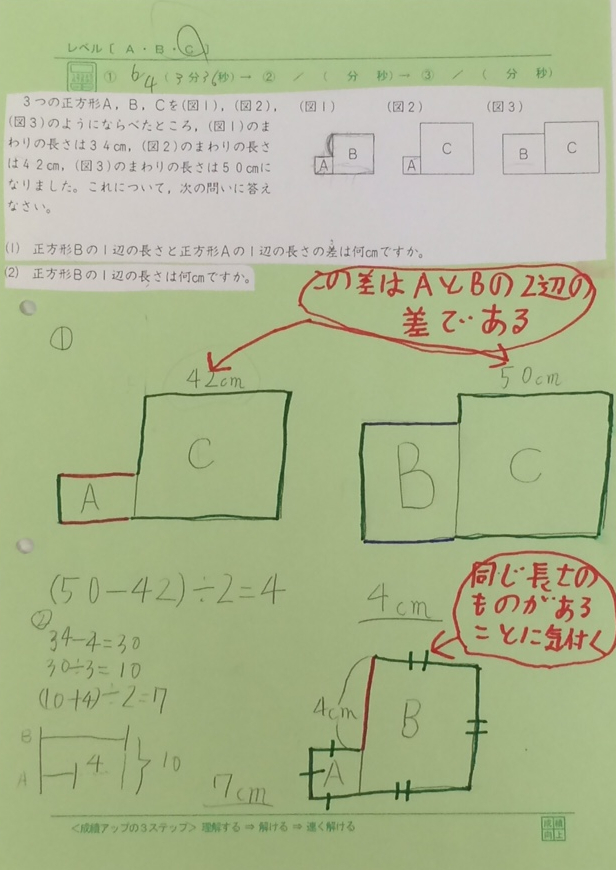 レベル〔 A ・ B ・ C 〕
① 6/4 (3分36秒) → ② ／ ( 分 秒) → ③ ／ ( 分 秒)
3つの正方形A，B，Cを(図1)，(図2)，
(図3)のようにならべたところ，(図1)のま
わりの長さは34cm，(図2)のまわりの長さ
は42cm，(図3)のまわりの長さは50cmに
なりました。これについて，次の問いに答え
なさい。
(図1)
A
B
(図2)
A
C
(図3)
B
C
(1) 正方形Bの1辺の長さと正方形Aの1辺の長さの差は何cmですか。
(2) 正方形Bの1辺の長さは何cmですか。
この差はAとBの2辺の
差である
①
42cm
A
C
50cm
B
C
(50-42)÷2=4
4cm
同じ長さの
ものがある
ことに気付く
②
34-4=30
30÷3=10
(10+4)÷2=7
B
A
4
10
7cm
4cm
A
B
＜成績アップの3ステップ＞ 理解する ⇒ 解ける ⇒ 速く解ける
成績
向上